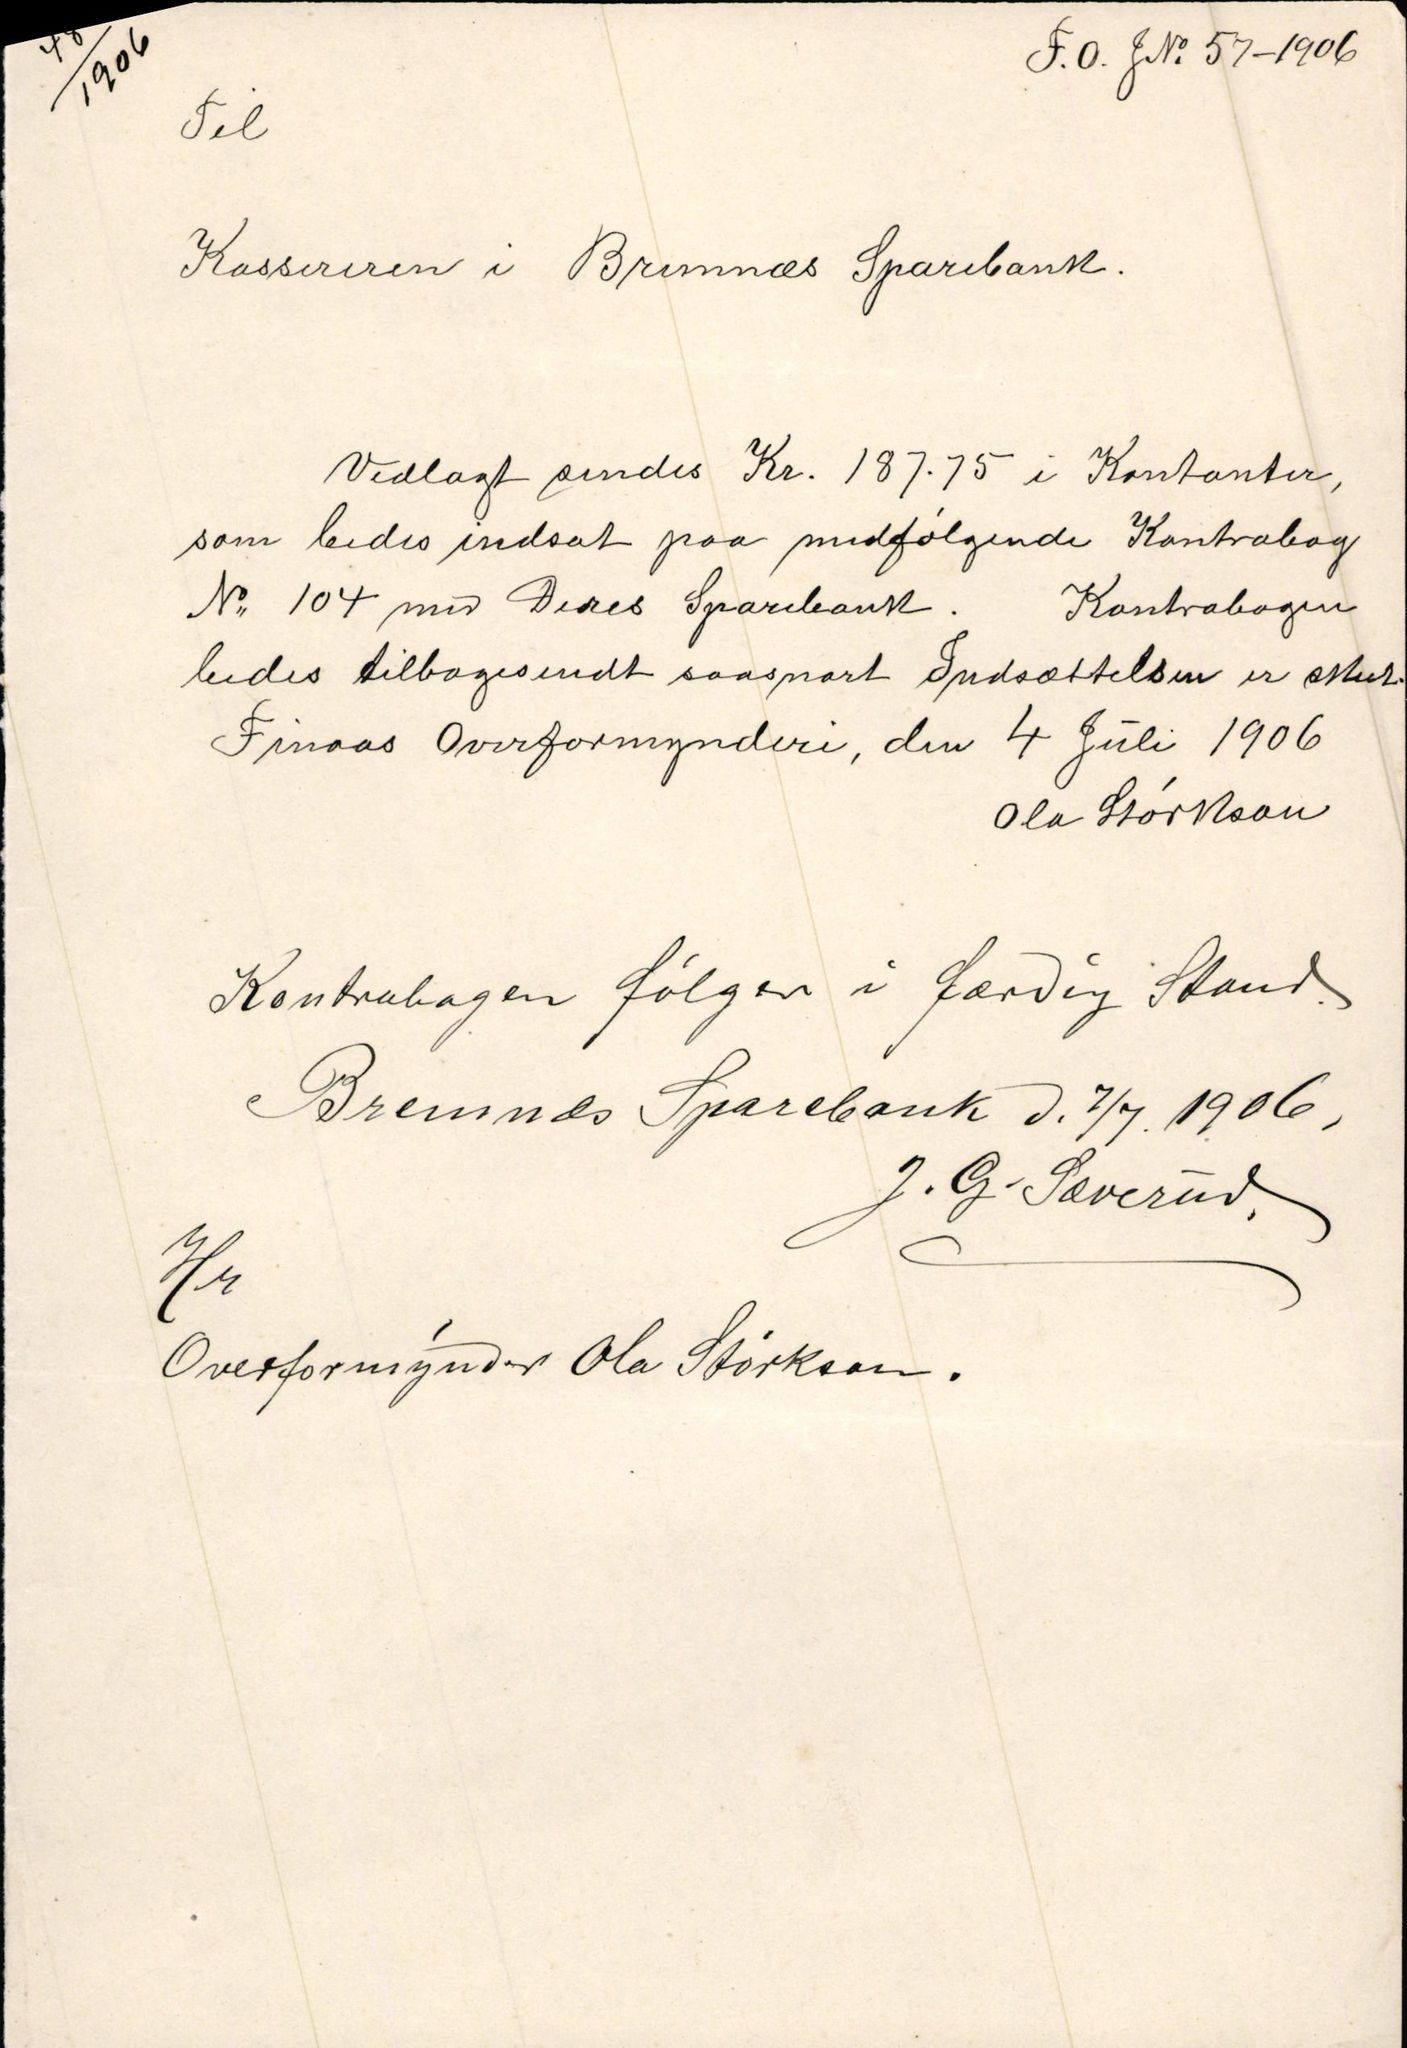 48/1906
F.O. JNo. 57-1906
Til
Kassereren i Bremnæs Sparebank.
Vedlagt sendes Kr. 187.75 i Kontanter,
som bedes indsat paa medfølgende Kontrabog
No. 104 med Deres Sparebank. Kontrabogen
bedes tilbagesendt saasnart Indsættelsen er sket.
Finaas Overformynderi, den 4 Juli 1906
Ola Størkson
Kontrabogen følger i færdig Stand.
Bremnæs Sparebank d. 7/7. 1906,
J. G. Sæverud.
Hr
Overformynder Ola Størkson.